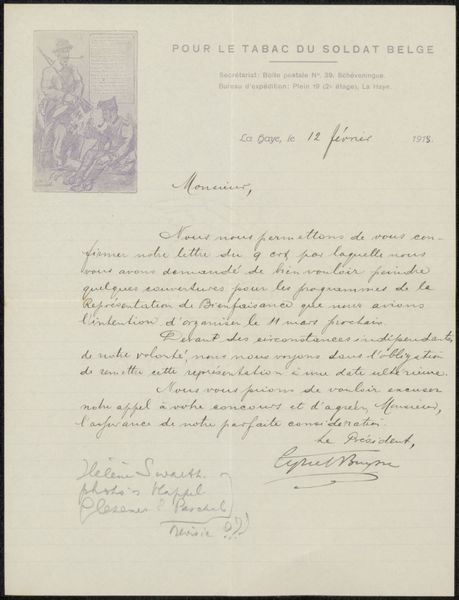 POUR LE TABAC DU SOLDAT BELGE
Secrétariat: Boîte postale No. 39, Schéveningue.
Bureau d'expédition: Plein 19 (2e étage), La Haye.
La Haye, le 12 février 1915
Monsieur,
Nous nous permettons de vous con-
firmer notre lettre du 9 crt par laquelle nous
vous avons demandé de bien vouloir peindre
quelques couvertures pour les programmes de la
Représentation de Bienfaisance que nous avions
l'intention d'organiser le 11 mars prochain.
Devant des circonstances indépendantes
de notre volonté, nous nous voyons dans l'obligation
de remettre cette représentation à une date ultérieure.
Nous vous prions de vouloir excuser
notre appel à votre concours et d'agréer, Monsieur,
l'assurance de notre parfaite considération.
Le Président,
Cyriel Buysse
Hélène Swarth.
photo's Happel